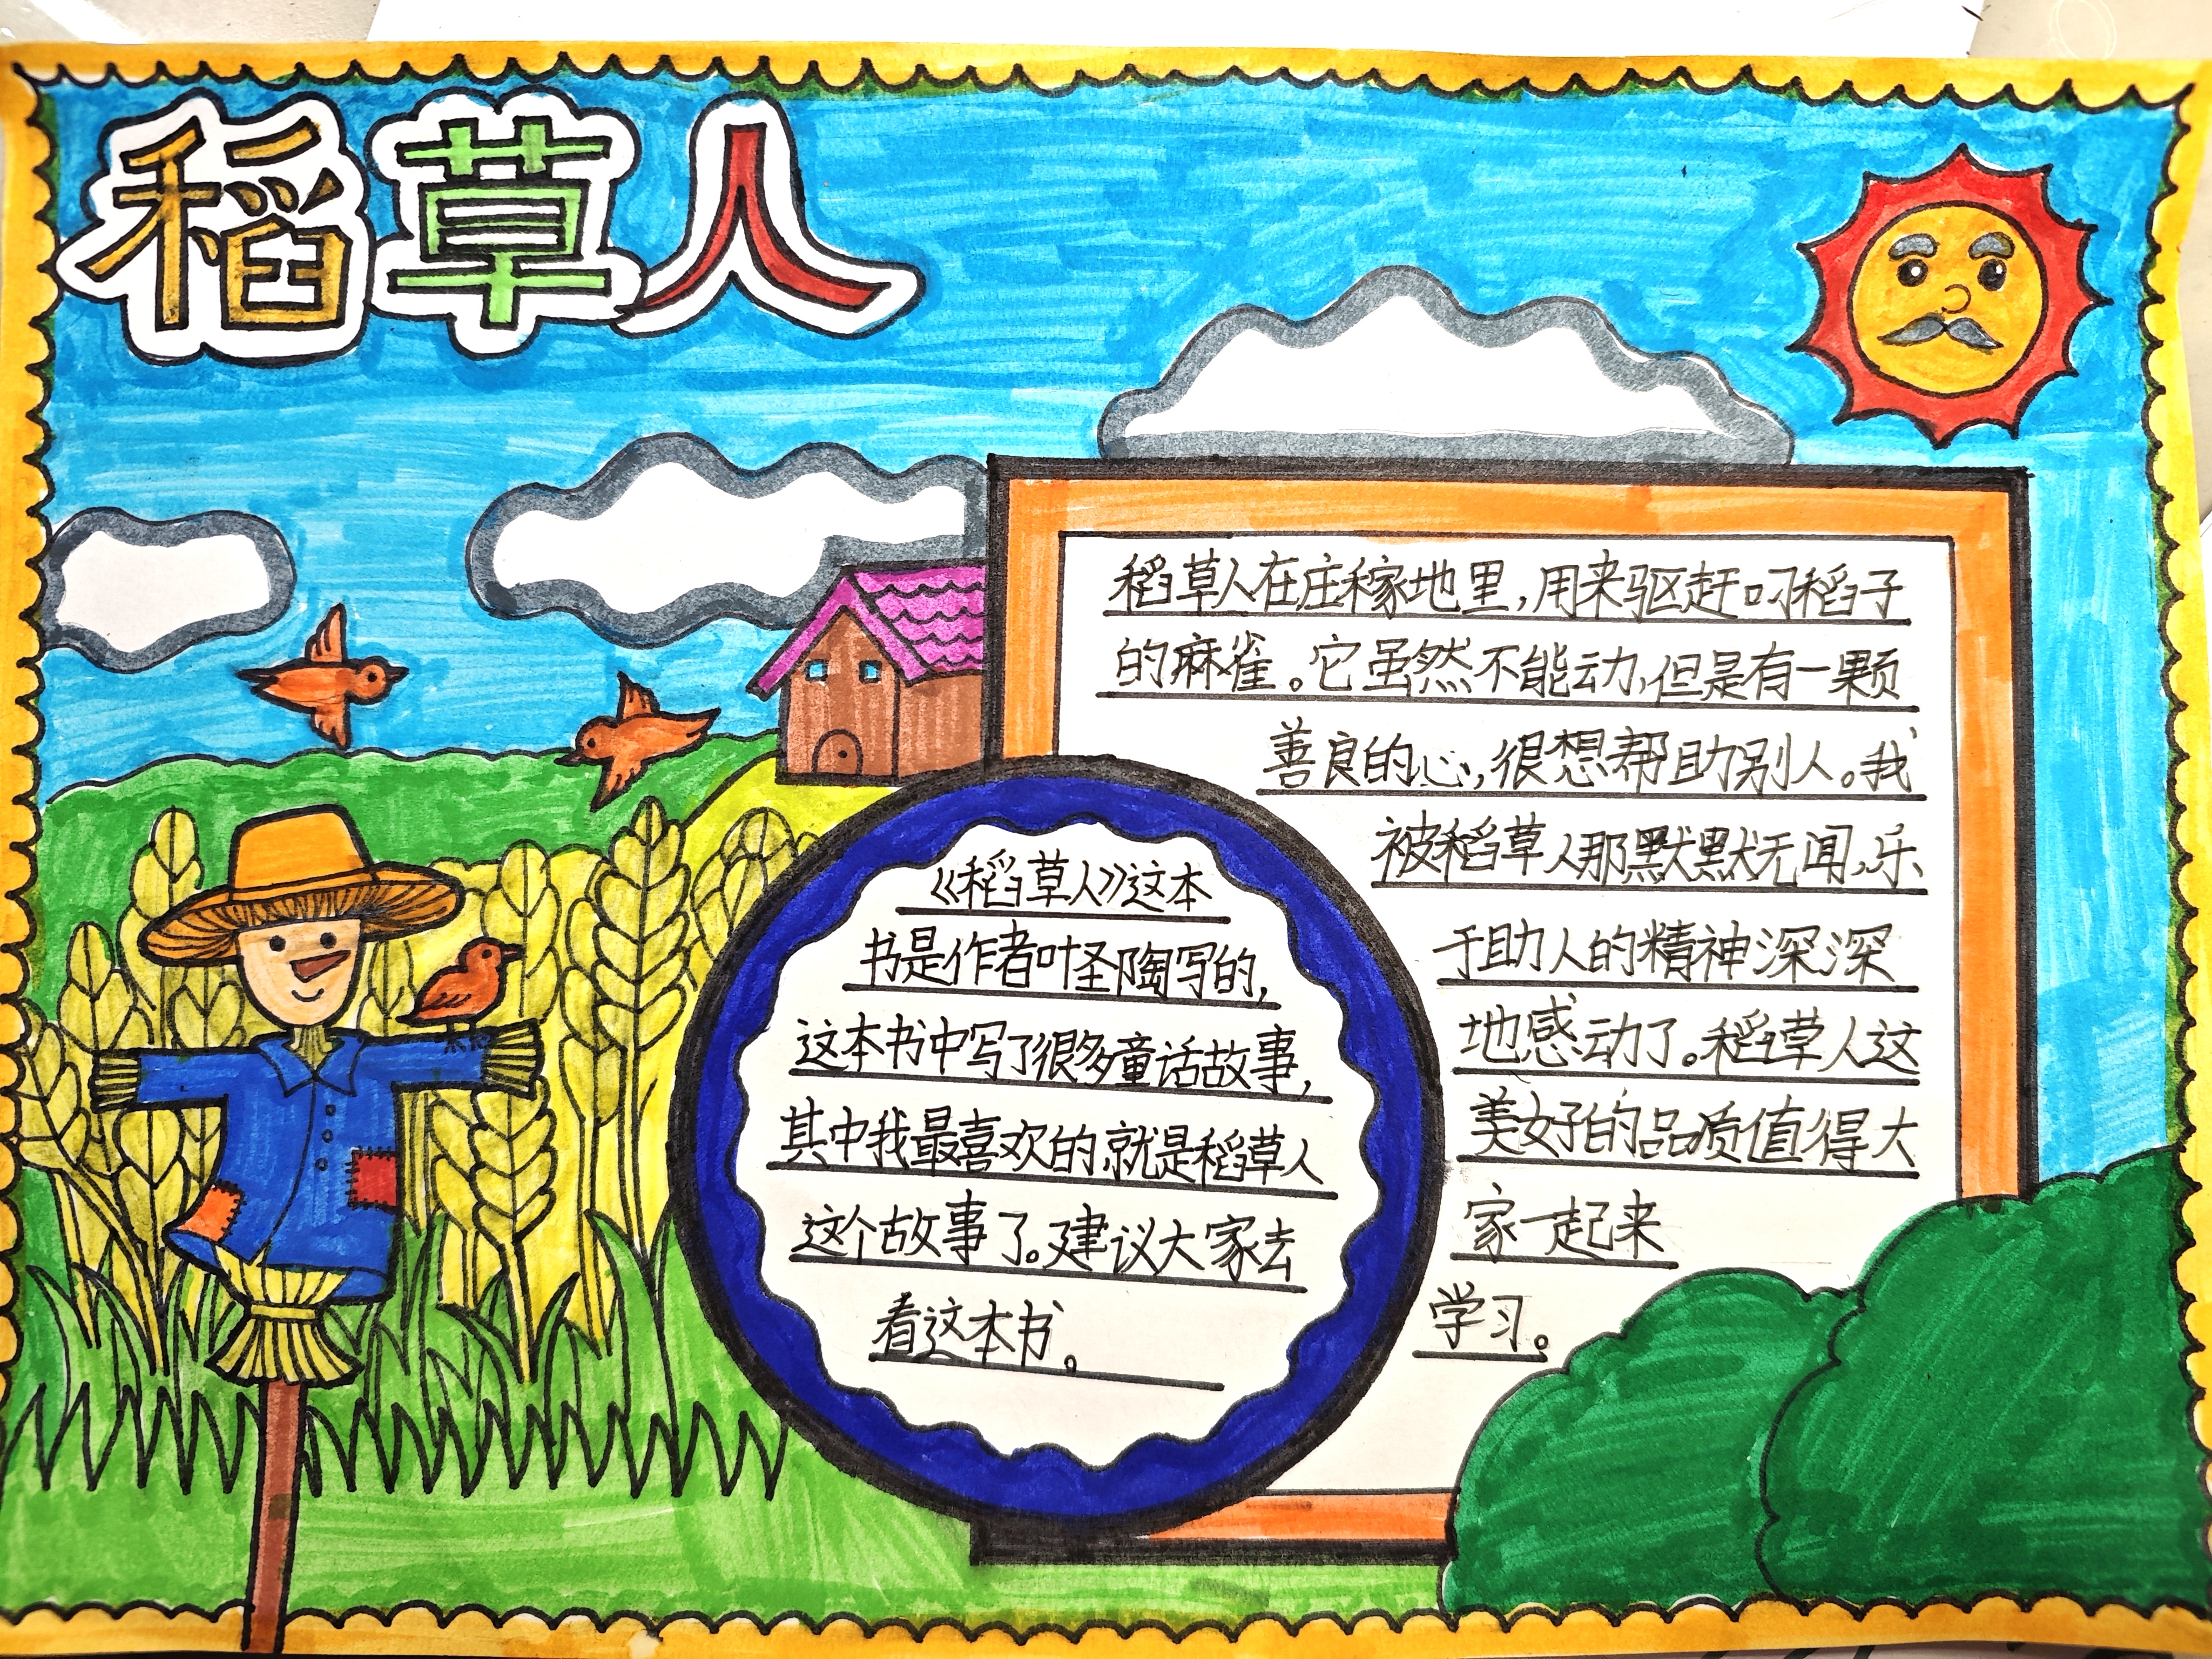 稻草人
稻草人在庄稼地里,用来驱赶叼稻子
的麻雀。它虽然不能动,但是有一颗
善良的心,很想帮助别人。我
被稻草人那默默无闻,乐
于助人的精神深深
地感动了。稻草人这
美好的品质值得大
家一起来
学习。
《稻草人》这本
书是作者叶圣陶写的,
这本书中写了很多童话故事,
其中我最喜欢的,就是稻草人
这个故事了。建议大家去
看这本书。